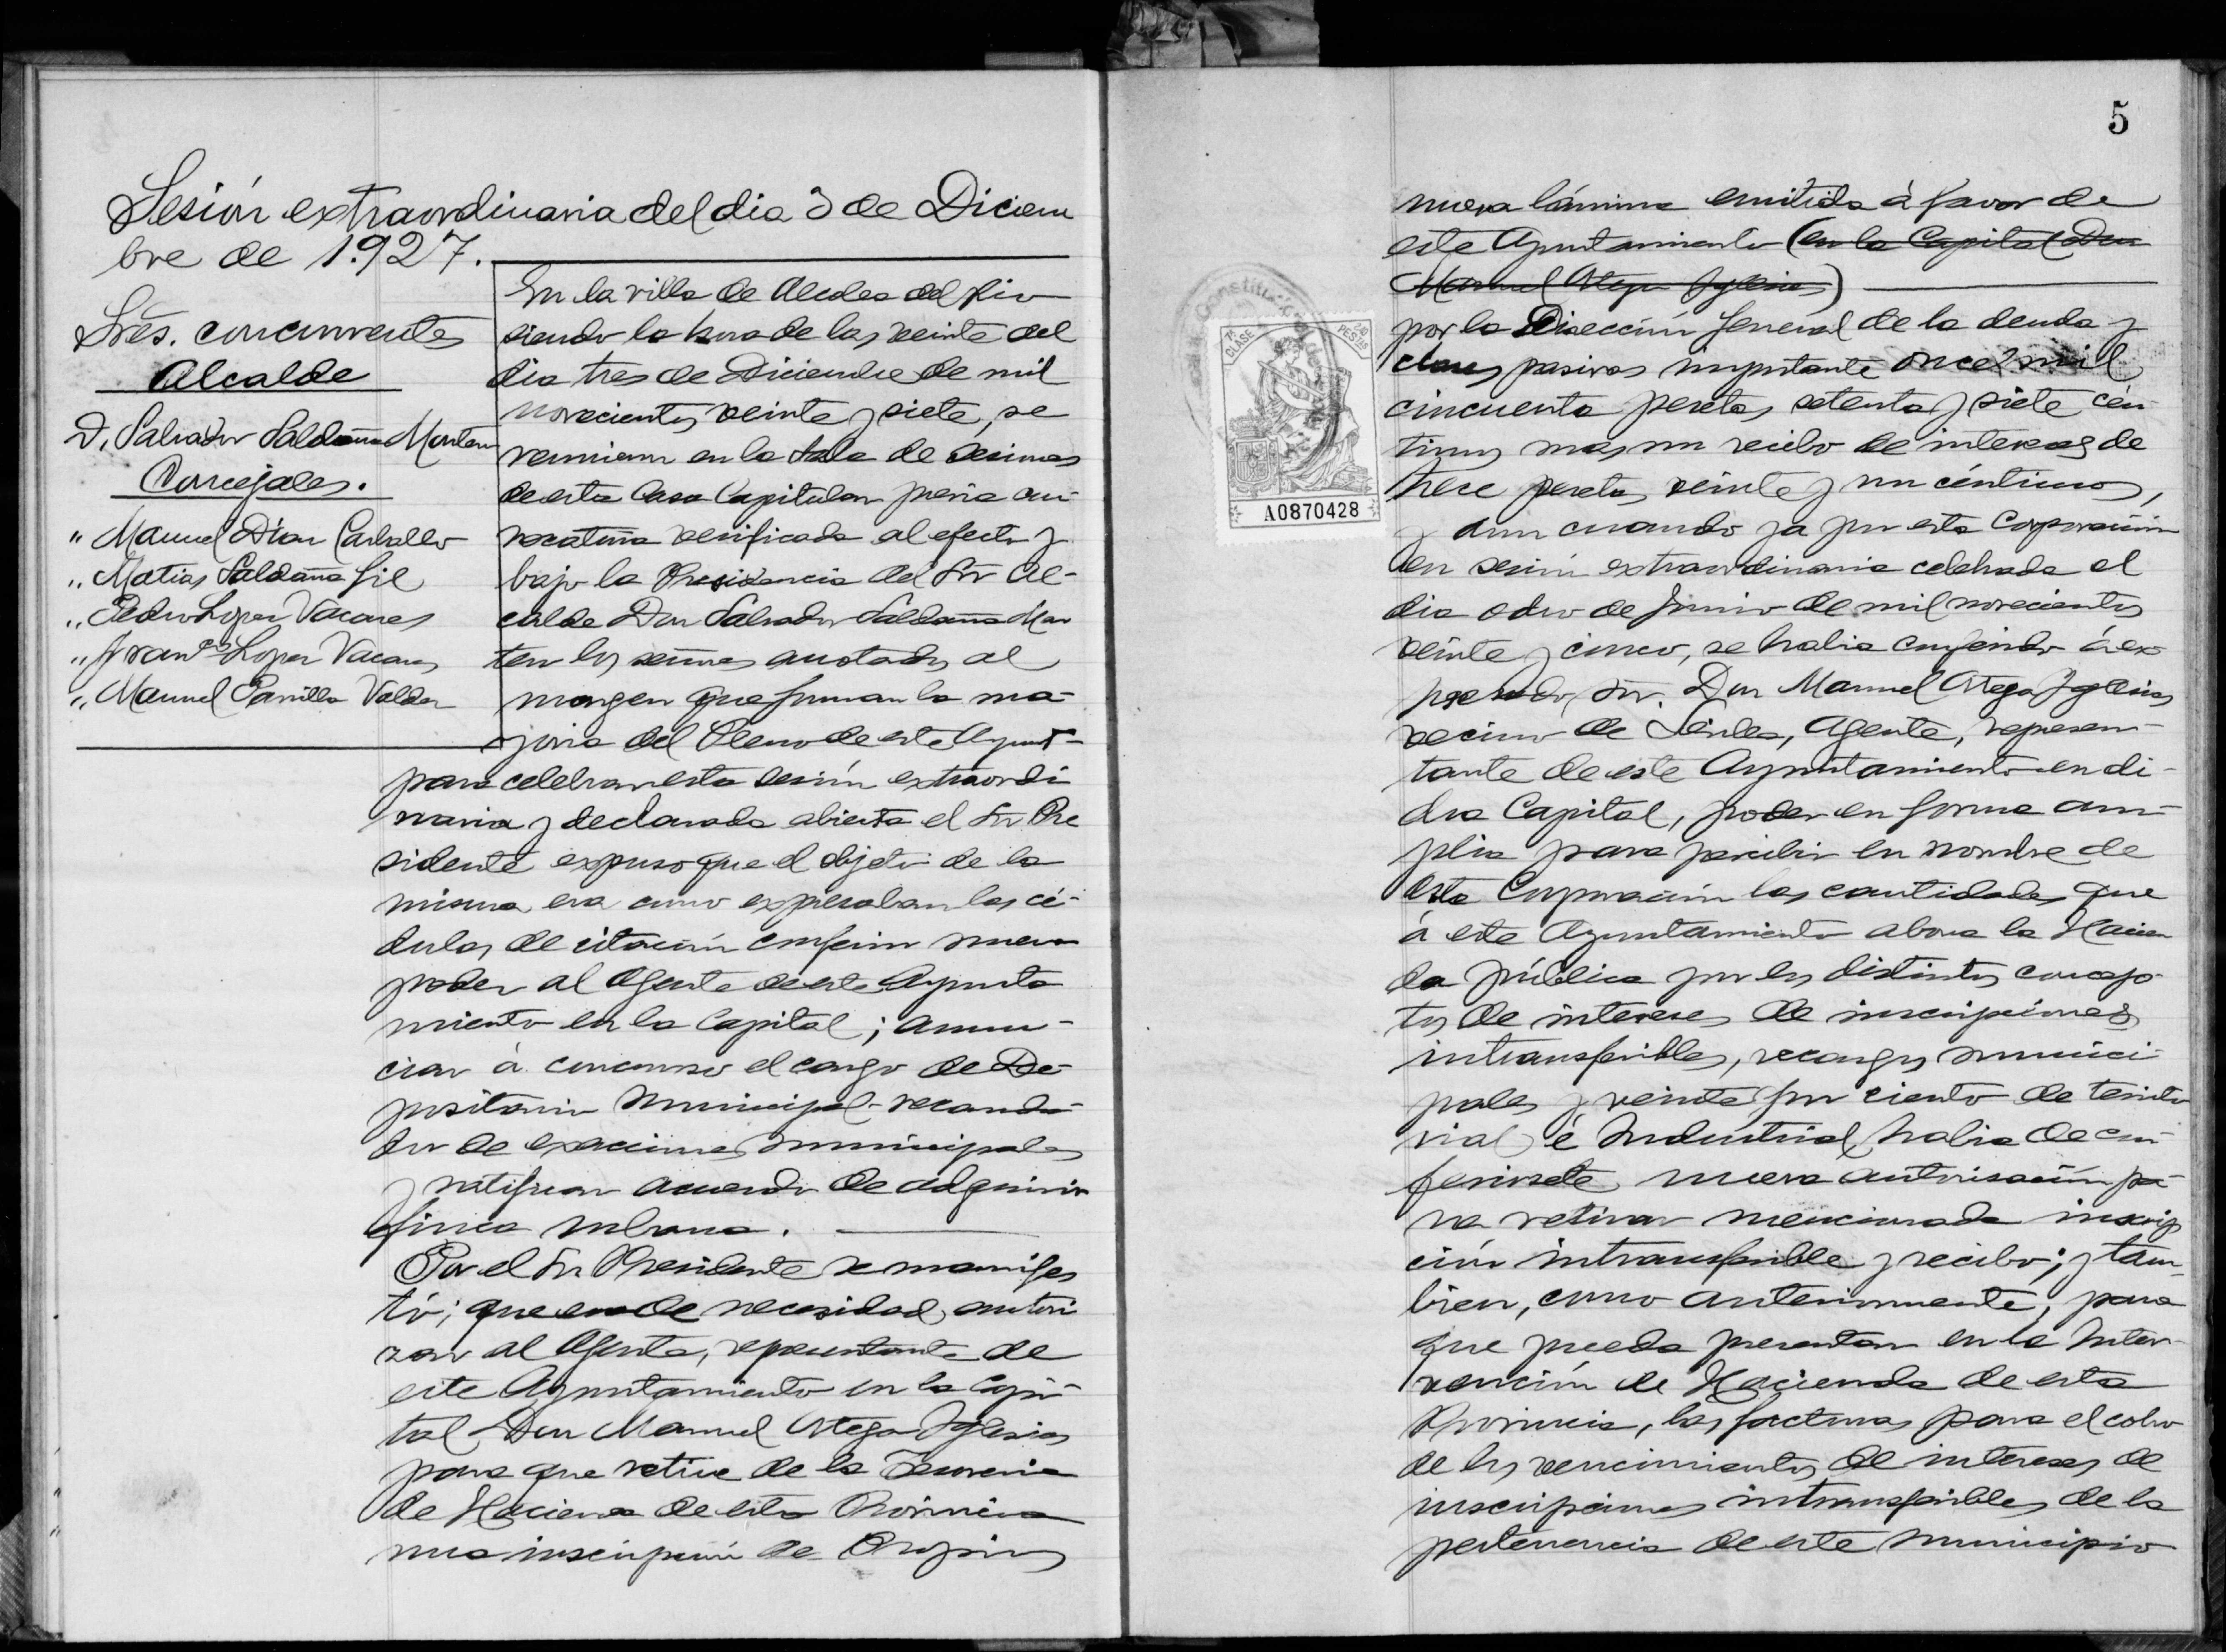 Sesión extraordinaria del dia 3 de Diciem
bre de 1.927.
Srēs. concurrentes
Alcalde
D. Salvador Saldaña Marten
Concejales.
" Manuel Diaz Carballo
" Matias Saldaña Gil
" Pedro Lopez Vacares
" Francᵒ Lopez Vacares
" Manuel Parrilla Valdez
En la villa de Alcolea del Rio
siendo la hora de las veinte del
dia tres de Diciembre de mil
novecientos veinte y siete, se
reunieron en la Sala de Sesiones
de esta Casa Capitular previa con-
vocatoria verificada al efecto y
bajo la Presidencia del Sr Al-
calde Don Salvador Saldaña Mar
ten los señores anotados al
margen que forman la ma-
yoria del Pleno de este Ayunt-
para celebrar esta sesión extraordi
naria y declarada abierta el Sr Pre
sidente expuso que el objeto de la
misma era como expresaban las cé-
dulas de citación conferir nuevo
poder al Agente de este Ayunta
miento en la Capital; anun-
ciar á concurso el cargo de De-
positario Municipal-recauda-
dor de exacciones municipales
y ratificar acuerdo de adquirir
finca urbana.
Por el Sr Presidente se manifes
tó; que era de necesidad autori
zar al Agente, representante de
este Ayuntamiento en la Capi-
tal Don Manuel Otega Iglesias
para que retire de la Tesoreria
de Hacienda de esta Provincia
una inscripción de Propios
5
nueva lámina emitida á favor de
este Ayuntamiento (en la Capital Don
Manuel Otega Iglesias)
por la Dirección General de la deuda y
clases pasivas importante once mil
cincuenta pesetas setenta y siete cén
timos mas un recibo de intereses de
trece pesetas veinte y un céntimos,
y aun cuando ya por esta Corporación
en sesión extraordinaria celebrada el
dia ocho de Junio de mil novecientos
veinte y cinco, se habia conferido á ex
presado Sr. Don Manuel Otega Iglesias
vecino de Sevilla, Agente, represen-
tante de este Ayuntamiento en di-
cha Capital, poder en forma am-
plia para percibir en nombre de
esta Corporación las cantidades que
á este Ayuntamiento abona la Hacien
da pública por los distintos concep-
tos de intereses de inscripciones
intransferibles, recargos munici-
pales y veinte por ciento de territo
rial é Industrial, habia de con-
ferirsele nueva autorisación pa-
ra retirar mencionada inscrip
ción intransferible y recibo; y tam-
bien, como anteriormente, para
que pueda presentar en la Inter-
vención de Hacienda de esta
Provincia, las facturas para el cobro
de los vencimientos de intereses de
inscripciones intransferibles de la
pertenencia de este municipio
Constitucional
7ª CLASE
PESETAS
A0870428